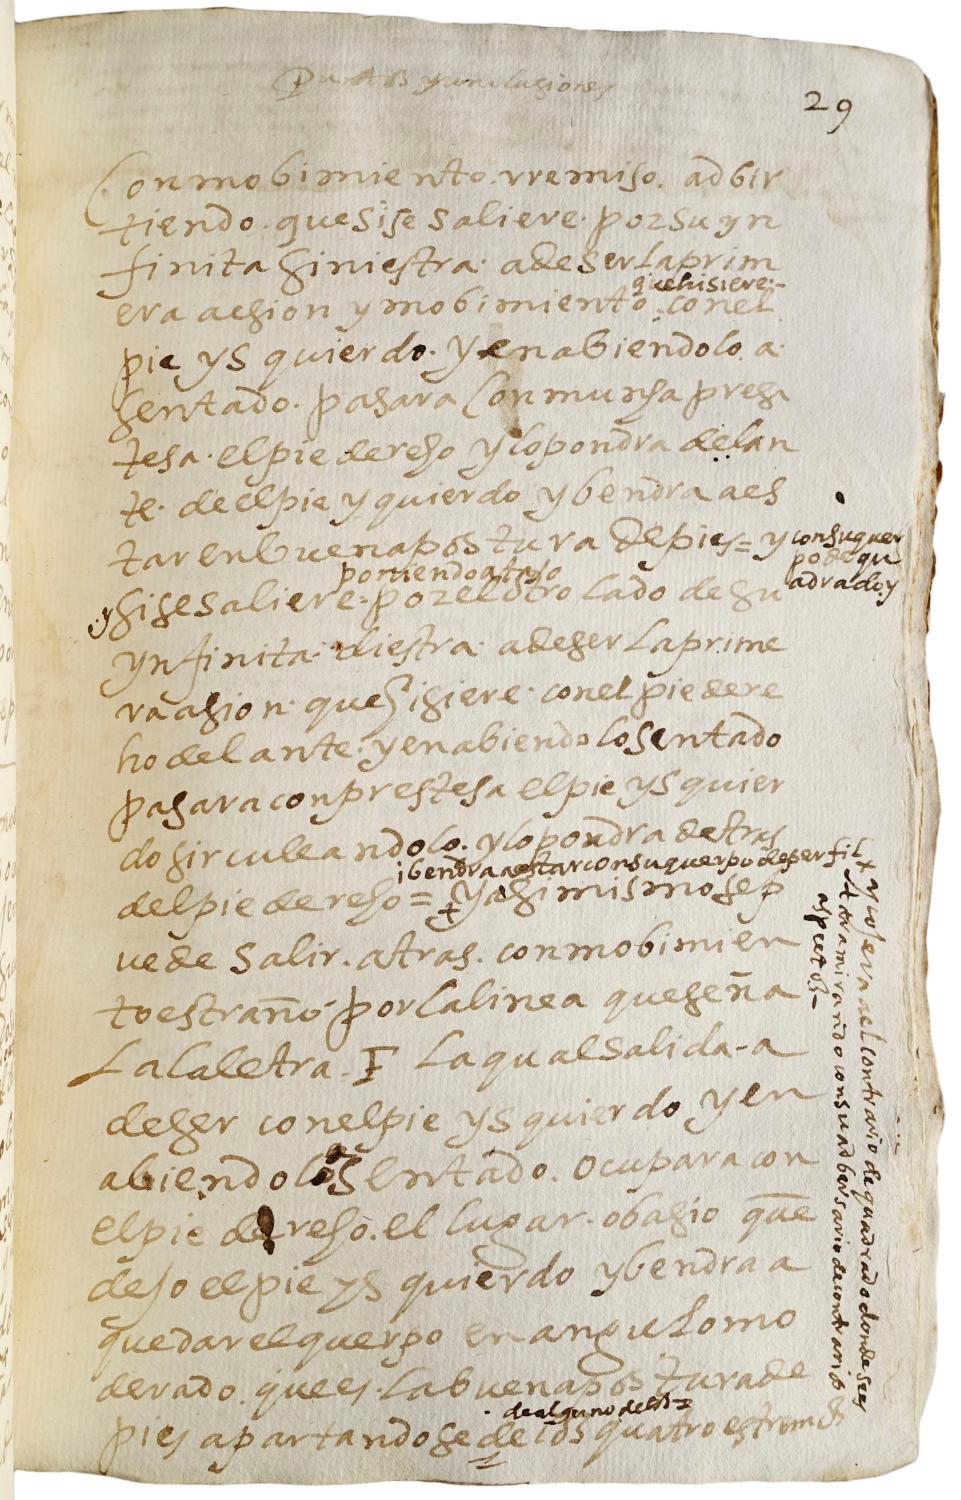 Puntos y conclusiones
29
Con mobimiento. rremiso. adbir
tiendo. que si se saliere. por su yn
finita siniestra. a de ser la prim
que hisiere.-
era acsion y mobimiento. con el
pie ysquierdo. y en abiendolo. a
sentado. pasara Con munsa presa
tesa. el pie dereso y lo pondra delan
te. de el pie yquierdo y bendra a es
tar en buena postura de pies = y con su quer
po de qu
adrado. y
poniendo atajo
y si se saliere. por el otro lado de su
ynfinita. diestra. a de ser la prime
ra asion. que hisiere. con el pie dere
ho delante. y en abiendolo sentado
pasara con prestesa el pie ysquier
do sirculeandolo. y lo pondra detras
i bendra a estar con su querpo de perfil
del pie dereso = y asimismo se p
uede salir. atras. con mobimien
to estraño por la linea que señ a
La la letra. F La qual salida-a
de ser con el pie ysquierdo y en
abiendolo asentado. ocupara con
el pie dereso. el lugar. o basio que
deso el pie ysquierdo y bendra a
quedar el querpo en angulo mo
derado. que es. la buena postura de
de alguno de los =
pies apartandose de los quatro estremos
y lo sera al contrario de quadrado donde se es
tara mirando con su adbersario de contrarios
aspectos-